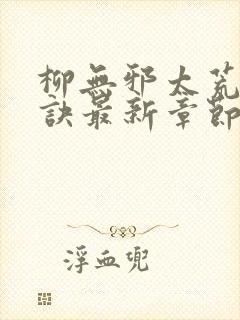 柳無邪太荒
訣最新章節
浮血兜